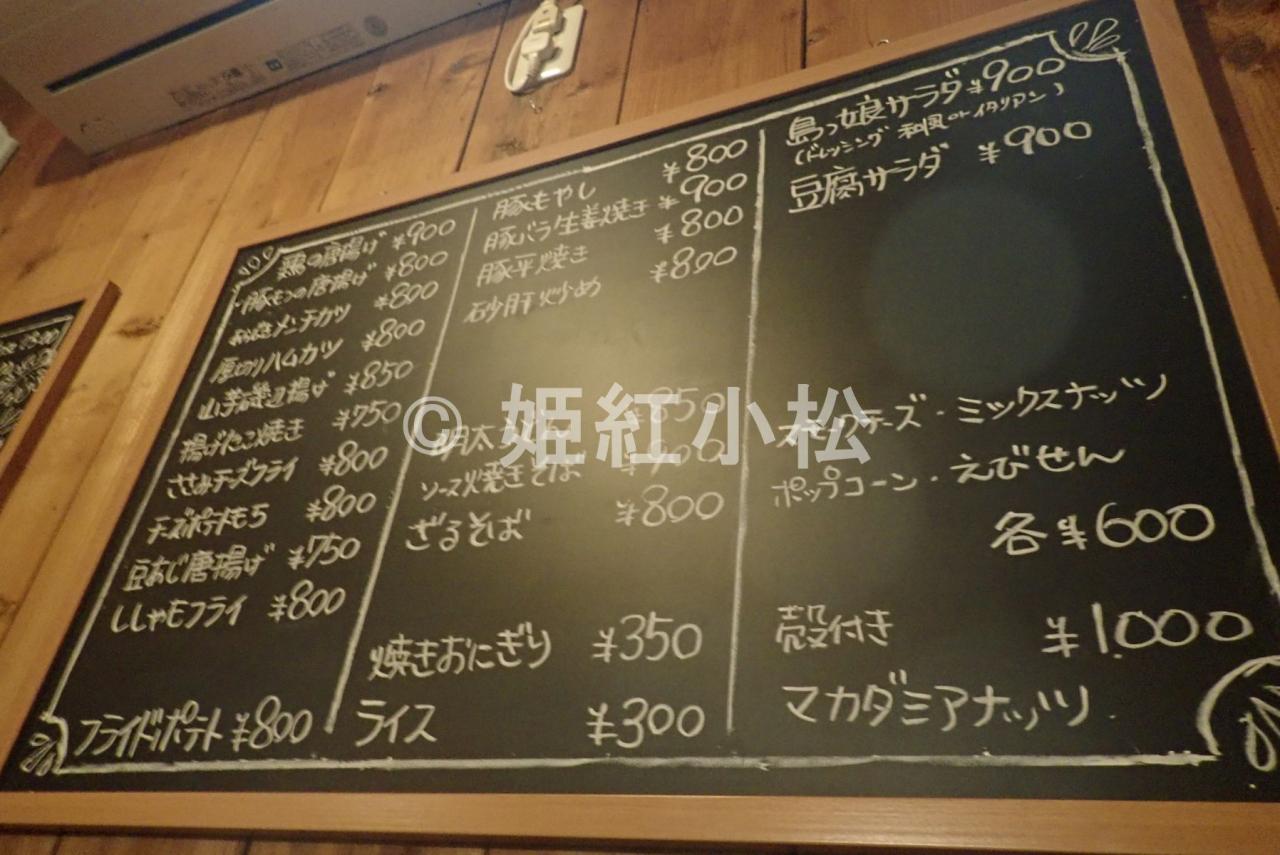 鶏の唐揚げ ¥900
豚もつの唐揚げ ¥800
メンチカツ ¥800
厚切りハムカツ ¥800
山芋磯辺揚げ ¥850
揚げたこ焼き ¥750
ささみチーズフライ ¥800
チーズポテトもち ¥800
豆あじ唐揚げ ¥750
ししゃもフライ ¥800
フライドポテト ¥800
豚もやし ¥800
豚バラ生姜焼き ¥900
豚平焼き ¥800
砂肝炒め ¥800
明太 ¥850
ソース焼きそば ¥900
ざるそば ¥800
焼きおにぎり ¥350
ライス ¥300
島っ娘サラダ ¥900
(ドレッシング 和風 or イタリアン)
豆腐サラダ ¥900
スモークチーズ・ミックスナッツ
ポップコーン・えびせん
各¥600
殻付き ¥1.000
マカダミアナッツ
© 姫紅小松